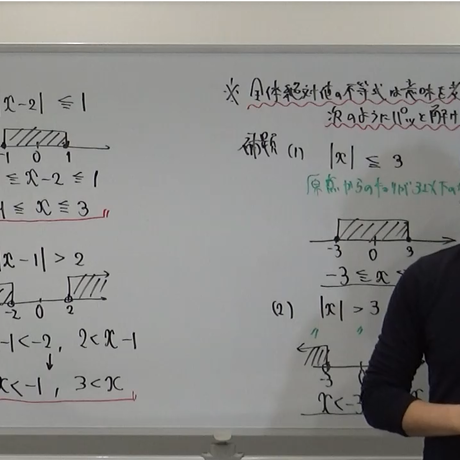 x-2| ≦ 1
-1 0 1
≦ x-2 ≦ 1
1 ≦ x ≦ 3
|x-1| > 2
-2 0 2
-1<-2, 2<x-1
x<-1, 3<x
※ 全体絶対値の不等式は意味を
次のようにパッと解け
(1) |x| ≦ 3
原点からの
-3 0 3
-3 ≦ x ≦
(2) |x| > 3
〃 〃
-3
x<-3